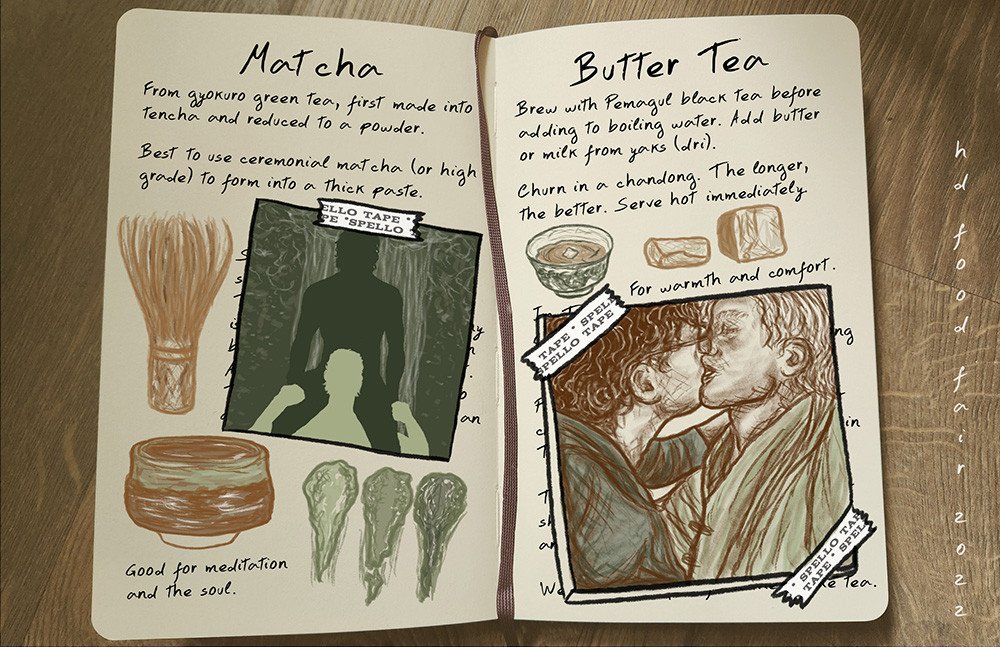 Matcha
From gyokuro green tea, first made into
tencha and reduced to a powder.
Best to use ceremonial matcha (or high
grade) to form into a thick paste.
ELLO TAPE *
PE *SPELLO
an
Good for meditation
and the soul.
Butter Tea
Brew with Pemagul black tea before
adding to boiling water. Add butter
or milk from yaks (dri).
Churn in a chandong. The longer,
the better. Serve hot immediately
For warmth and comfort.
TAPE * SPELL
SPELLO TAPE
ng
in
an
* SPELLO TAP
TAPE * SPEL
We
tea.
hd food fair 2022